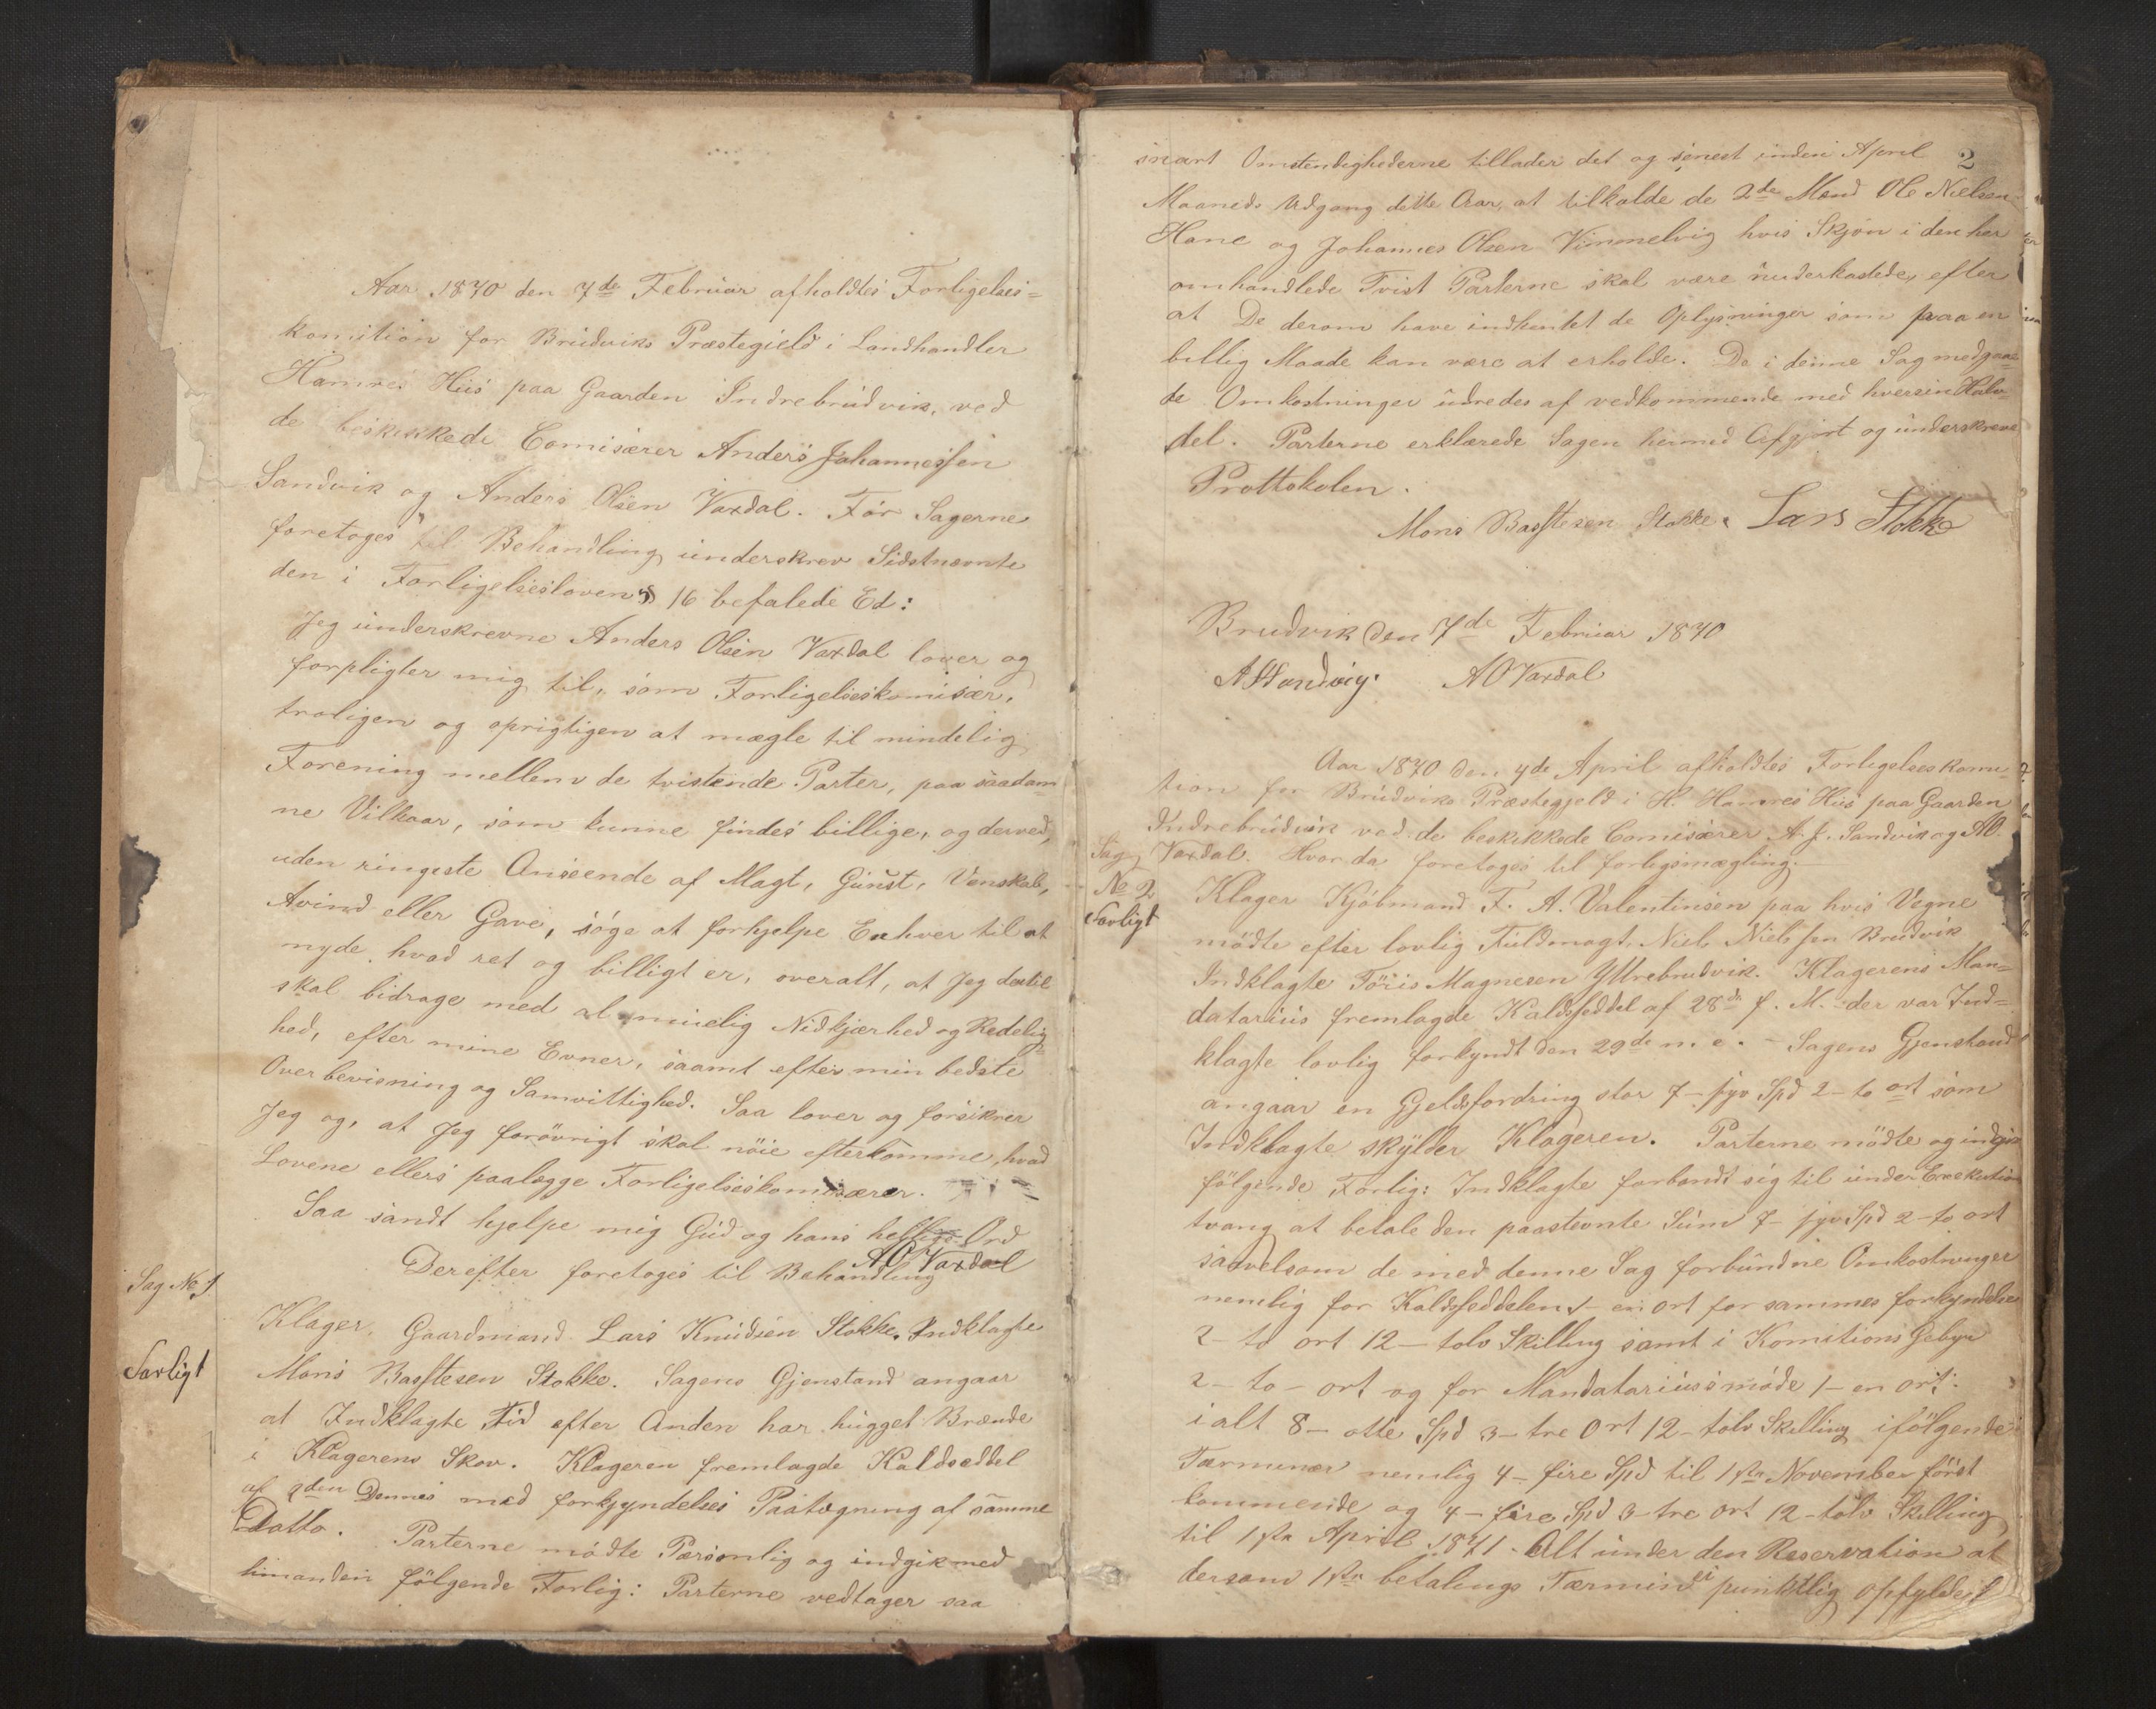 Aar 1870 den 7de Februar afholdtes Forligelses=
komition for Brudviks Præstegield i Landhandler
Hamres Huus paa Gaarden Indrebrudvik, ved
de beskikkede Comisærer Anders Johannessen
Sandvik og Anders Olsen Vaxdal. Før Sagerne
foretoges til Behandling underskrev Sidstnævnte
den i Forligelsesloven § 16 befalede Ed:
Jeg underskrevne Anders Olsen Vaxdal lover og
forpligter mig til, som Forligelseskomisær,
troligen og oprigtigen at mægle til mindelig
Forening mellem de tvistende Parter, paa saadan=
ne Vilkaar, som kunne findes billige, og derved,
uden ringeste Anseende af Magt, Gunst, Venskab,
Avind eller Gave, søge at forhjelpe Enhver til at
nyde, hvad ret og billigt er, overalt, at Jeg dertil
skal bidrage med al muelig Nidkjærhed og Redelig=
hed, efter mine Evner, saamt efter min bedste
Overbevisning og Samvittighed. Saa lover og forsikrer
Jeg og, at Jeg forøvrigt skal nøie efterkomme, hvad
Lovene ellers paalægge Forligelseskomisærer.
Saa sandt hjelpe mig Gud og hans hellige Ord
AO Vaxdal
Derefter foretoges til Behandling
Sag No 1
Klager, Gaardmand Lars Knudsen Stokke. Indklagte
Forligt
Mons Basstesen Stokke. Sagens Gjenstand angaar
at Indklagte Tid efter Anden har hugget Brænde
i Klagerens Skov. Klageren fremlagde Kaldseddel
af den Dennes med forkyndelses Paategning af samme
Datto. Parterne mødte Personlig og indgik med
hinanden følgende Forlig: Parterne vedtager saa
2
snart Omstendighederne tillader det og senest inden April
Maaneds Udgang dette Aar, at tilkalde de 2de Mænd Ole Nielsen
Hane og Johannes Olsen Vimmelvig hvis Skjøn i den her
omhandlede Tvist Parterne skal være underkastede, efter
at De derom have indhentet de Oplysninger som paa en
billig Maade kan være at erholde. De i denne Sag medgaae=
de Omkostninger udredes af vedkommende med hver sin Halv=
del. Parterne erklærede Sagen hermed Afgjort og underskrev
Prottokolen.
Mons Basstesen Stokke. Lars Stokke
Brudvik den 7de Februar 1870
AJSandvig. AOVaxdal
Aar 1870 den 4de April afholdtes Forligelseskomi=
tion for Brudviks Præstegjeld i H. Hamres Huus paa Gaarden
Indrebrudvik ved de beskikkede Comisærer A. J. Sandvik og AO.
Vaxdal. Hvor da foretoges til forligsmægling.
Sag
No 2
Forligt
Klager Kjøbmand F. A. Valentinsen paa hvis Vegne
mødte efter lovlig Fuldmagt, Niels Nielssen Brudvik
Indklagte Magnesen Yttrebrudvik. Klagerens Man=
datarius fremlagde Kaldsseddel af 28de f. M. der var Ind=
klagte lovlig forkyndt den 29de n. e. - Sagens Gjenstand
angaar en Gjeldsfordring stor 7 - syv Spd 2 - to ort som
Indklagte skylder Klageren. Parterne mødte og indgik
følgende Forlig: Indklagte forbandt sig til under Exekution
tvang at betale den paastevnte Sum 7 - syv Spd 2 - to ort
saavelsom de med denne Sag forbundne Omkostninger
nemlig for Kaldsseddelen 1 - en ort for sammes forkyndelse
2 - to ort 12 - tolv Skilling samt i Komitions Gebyr
2 - to - ort og for Mandatariusmøde 1 - en ort.
ialt 8 - otte Spd 3 - tre Ort 12 - tolv Skilling i følgende
Tærminer nemlig 4 - fire Spd til 1ste November først
kommende og 4 - fire Spd 3 - tre ort 12 - tolv Skilling
til 1ste April 1871. Alt under den Reservation at
dersom 1ste betalings Tærmin ei punktlig opfyldes